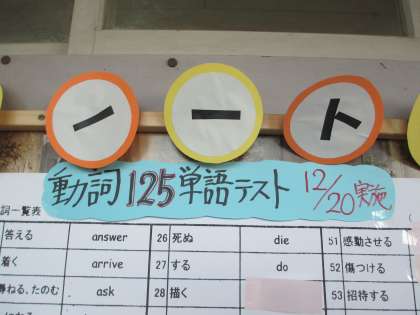 ノート
動詞125単語テスト 12/20実施
詞一覧表
答える answer 26 死ぬ die 51 感動させる
着く arrive 27 する do 52 傷つける
尋ねる、たのむ ask 28 描く 53 招待する